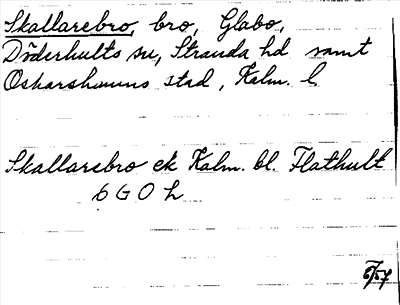 Skallarebro, bro, Glabo,
Döderhults sn, Stranda hd samt
Oskarshamns stad, Kalm. l.
Skallarebro ek Kalm. bl. Flathult
6 G O h